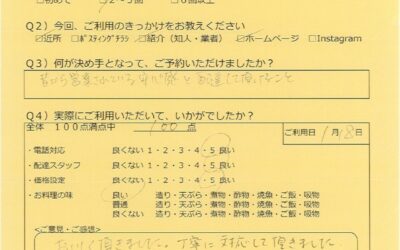 □初めて □2～5回 □6回以上
Q2）今回、ご利用のきっかけをお教えください
☑近所 □ﾎﾟｽﾃｨﾝｸﾞﾁﾗｼ □紹介（知人・業者） ☑ホームページ □Instagram
Q3）何が決め手となって、ご予約いただけましたか？
昔から営業されている安心感と
Q4）実際にご利用いただいて、いかがでしたか？
全体 100点満点中 100 点
ご利用日 1月8日
・電話対応 良くない 1・2・3・4・5 良い
・配達スタッフ 良くない 1・2・3・4・5 良い
・価格設定 良くない 1・2・3・4・5 良い
・お料理の味 良い 造り・天ぷら・煮物・酢物・焼魚・ご飯・吸物
普通 造り・天ぷら・煮物・酢物・焼魚・ご飯・吸物
良くない 造り・天ぷら・煮物・酢物・焼魚・ご飯・吸物
＜ご意見・ご感想＞
おいしく頂きました。丁寧に対応して頂き